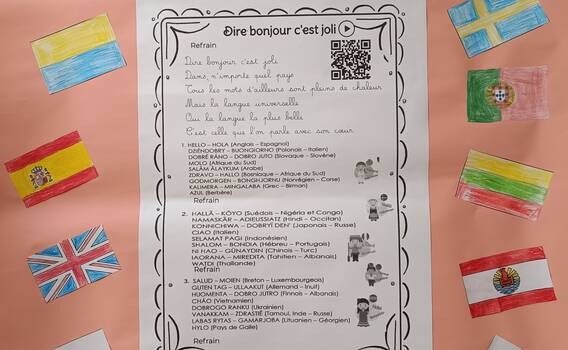 Dire bonjour c'est joli
Refrain
Dire bonjour c'est joli
Dans n'importe quel pays
Tous les mots d'ailleurs sont pleins de chaleur
Mais la langue universelle
Oui la langue la plus belle
C'est celle que l'on parle avec son cœur
1. HELLO – HOLA (Anglais – Espagnol)
DZIÉNDOBRY – BUONGIORNO (Polonais – Italien)
DOBRÉ RÁNO – DOBRO JUTO (Slovaque – Slovène)
MOLO (Afrique du Sud)
SALÂM ÂLAYKUM (Arabe)
ZDRAVO – HALLO (Bosniaque – Afrique du Sud)
GODMORGEN – BONGHJORNU (Norvégien – Corse)
KALIMERA – MINGALABA (Grec – Birman)
AZUL (Berbère)
Refrain
2. HALLÅ – KÓYO (Suédois – Nigéria et Congo)
NAMASKÄR – ADIEUSSIATZ (Hindi – Occitan)
KONNICHIWA – DOBRYÏ DEN' (Japonais – Russe)
CIAO (Italien)
SELAMAT PAGI (Indonésien)
SHALOM – BONDIA (Hébreu – Portugais)
NI HAO – GÜNAYDIN (Chinois – Turc)
IAORANA – MIREDITA (Tahitien – Albanais)
WATDI (Thaïlande)
Refrain
3. SALUD – MOIEN (Breton – Luxembourgeois)
GUTEN TAG – ULLAAKUT (Allemand – Inuit)
HUOMENTA – DOBRO JUTRO (Finnois – Albanais)
CHÁO (Vietnamien)
DOBROGO RANKU (Ukrainien)
VANAKKAM – ZDRASTIÉ (Tamoul, Inde – Russe)
LABAS RYTAS – GAMARJOBA (Lituanien – Géorgien)
HYLO (Pays de Galle)
Refrain